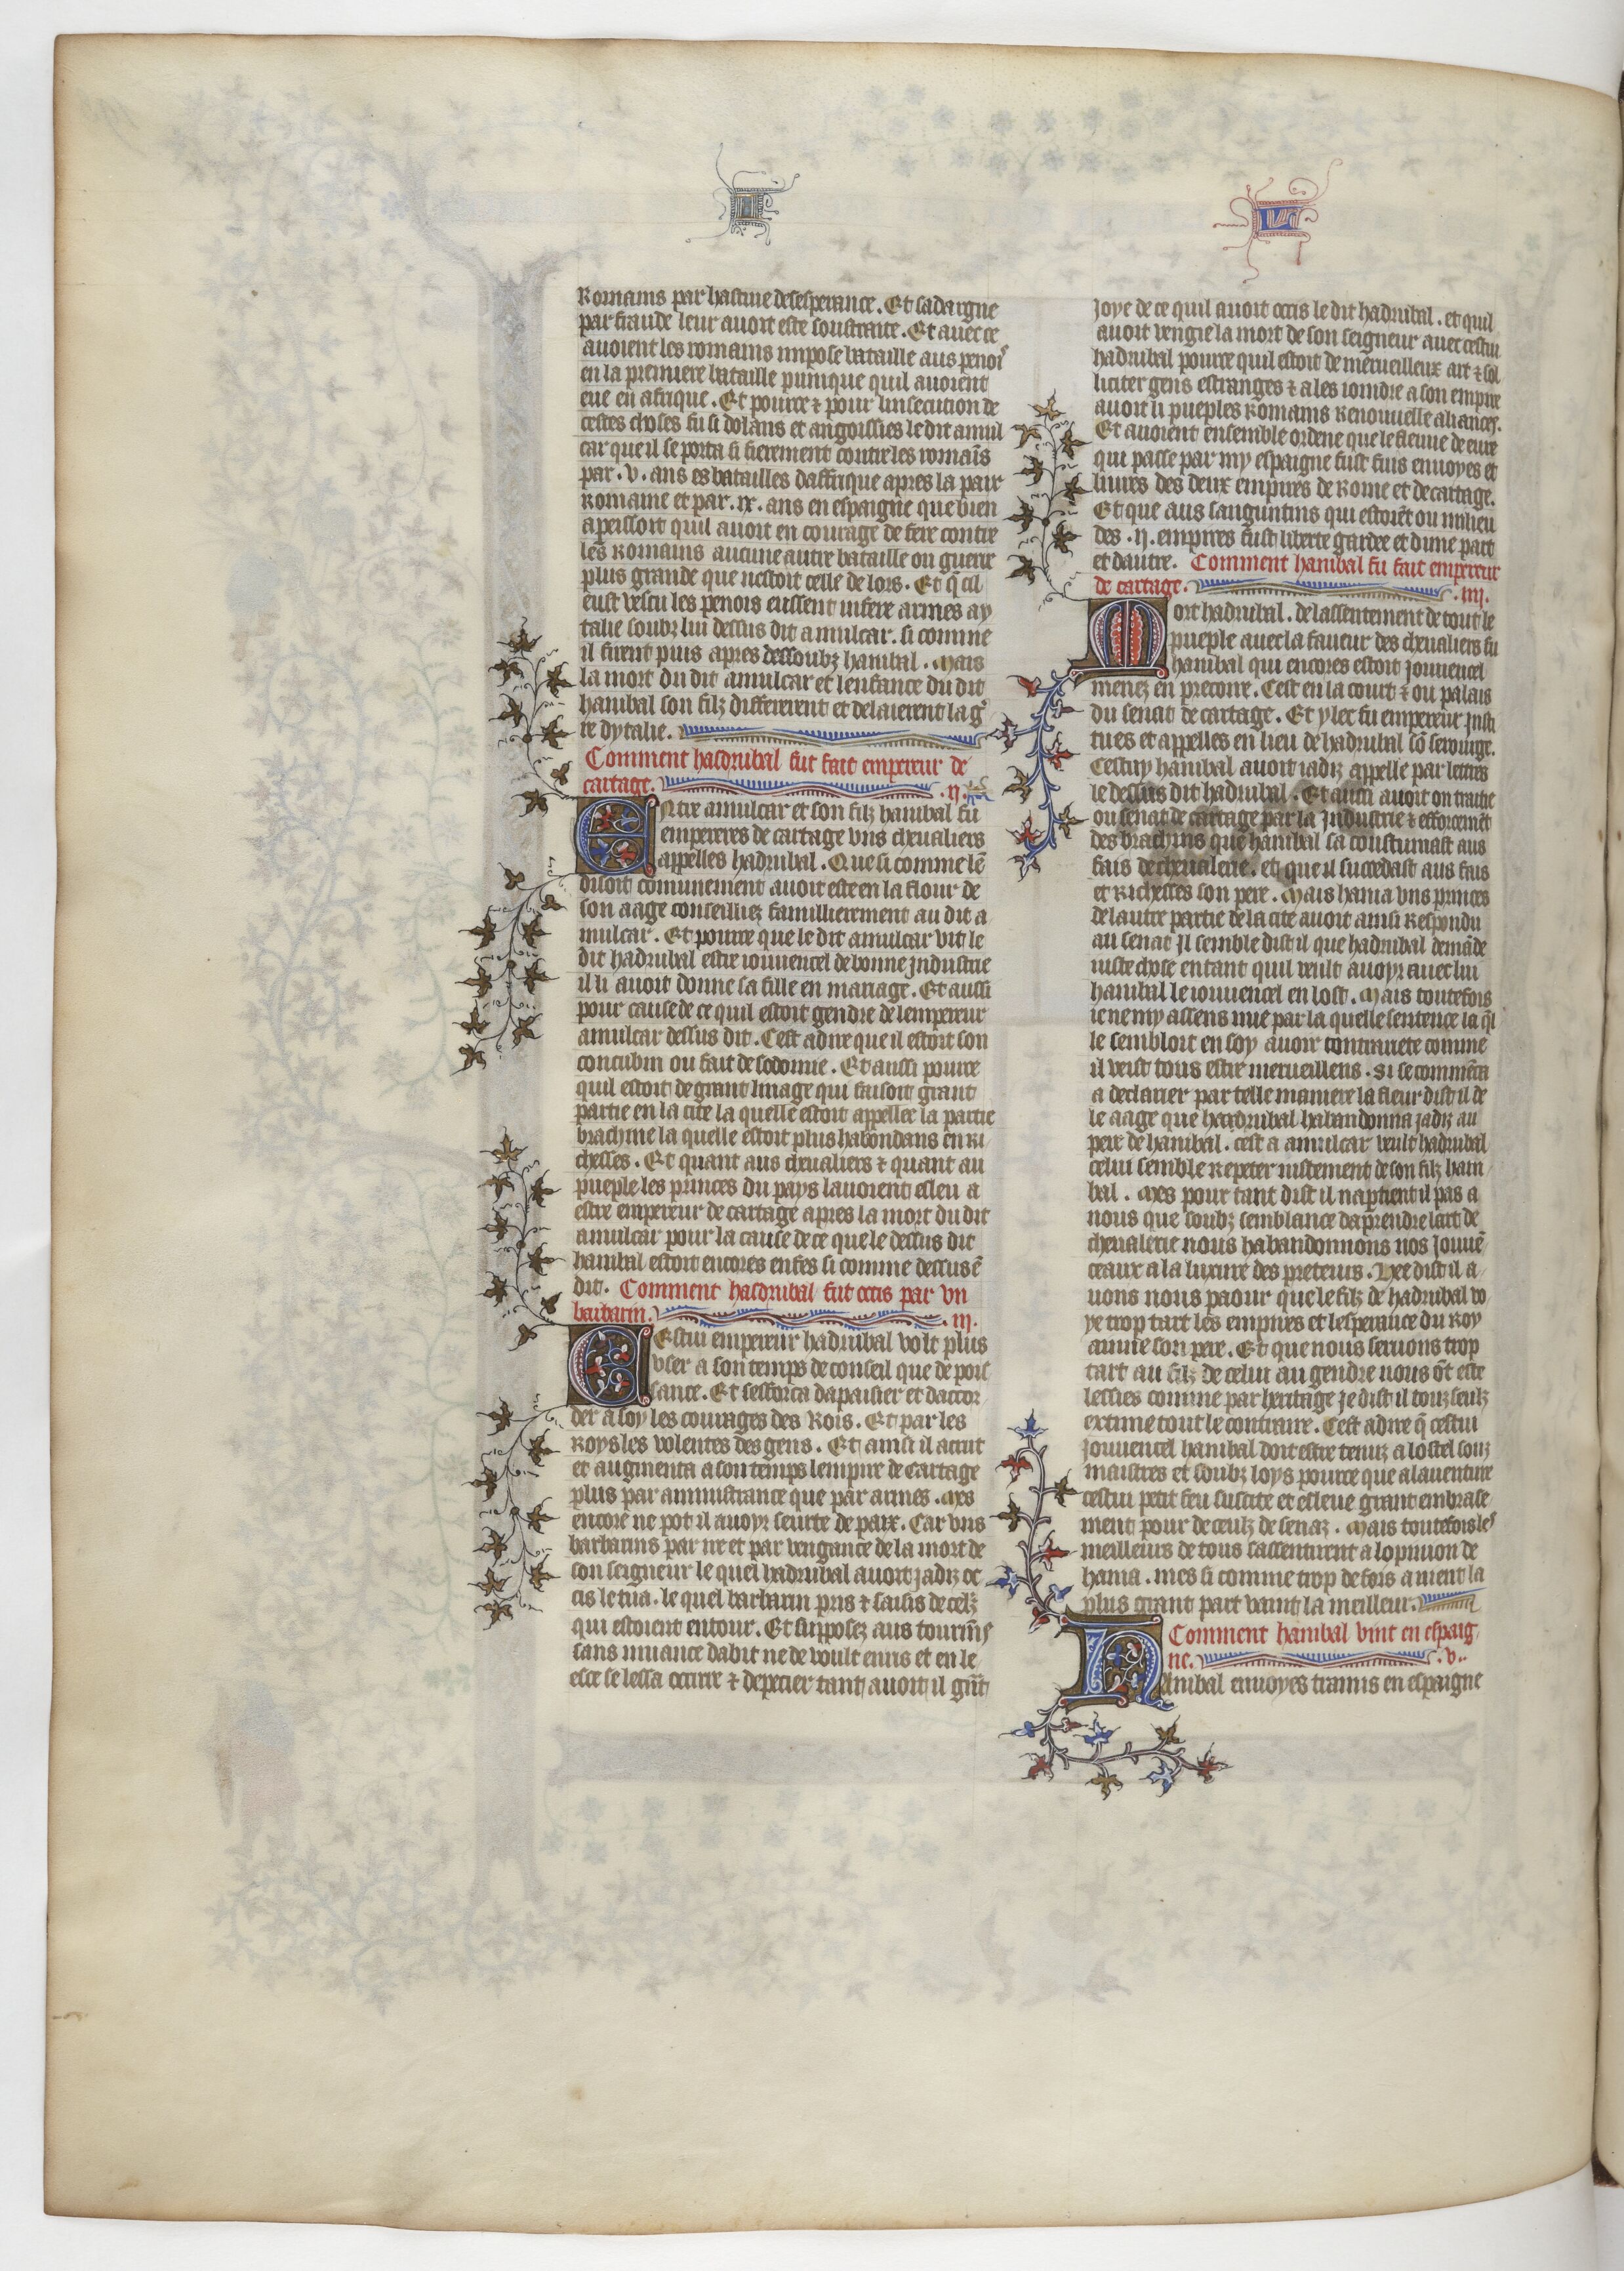 L
II
Romains par hastiue desesperance. Et sadaigne
par fraude leur auoit este soustraite. Et auec ce
auoient les romains impose bataille aus penois
en la premiere bataille punique quil auoient
eue en afrique. Et pource & pour linsecution de
cestes choses fu si dolans et angoissies le dit amul
car que il se porta si fierement contre les romaīs
par .v. ans es batailles daffrique apres la paix
Romaine et par .ix. ans en espaigne que bien
apeissoit quil auoit en courage de fere contre
les Romains aucune autre bataille ou guerre
plus grande que nestoit celle de lors. Et q̄ cil
eust vescu les penois eussent infere armes ay
talie soubz lui dessus dit amulcar. si comme
il firent puis apres dessoubz hanibal. Mais
la mort du dit amulcar et lenfance du dit
hanibal son filz differerent et delaierent la g̾
re dytalie.
Comment hasdrubal fut fait empereur de
cartage. .ii.
Entre amulcar et son filz hanibal fu
empereres de cartage vns cheualiers
appelles hadrubal. Que si comme lē
disoit comunement auoit este en la flour de
son aage conseilliez famillierement au dit a
mulcar. Et pource que le dit amulcar vit le
dit hadrubal estre iouuencel de bonne industrie
il li auoit donne sa fille en mariage. Et aussi
pour cause de ce quil estoit gendre de lempereur
amulcar dessus dit. Cest adire que il estoit son
concubin ou fait de sodomie. Et aussi pource
quil estoit de grant linage qui faisoit grant
partie en la cite la quelle estoit appellee la partie
brachine la quelle estoit plus habondans en ri
chesses. Et quant aus cheualiers & quant au
pueple les princes du pays lauoient esleu a
estre empereur de cartage apres la mort du dit
amulcar pour la cause de ce que le dessus dit
hanibal estoit encores enfes si comme dessus ē
dit. Comment hasdrubal fut occis par vn
barbarin. .iii.
Cestui empereur hadrubal volt plus
vser a son temps de conseil que de pois
sance. Et sefforca dapaisier et daccor
der a soy les courages des Rois. Et par les
Roys les volentes des gens. Et ainsi il acrut
et augmenta a son temps lempire de cartage
plus par aministrance que par armes. Mes
encore ne pot il auoyr seurte de paix. Car vns
barbarins par ire et par vengance de la mort de
son seigneur le quel hadrubal auoit jadiz oc
cis le tua. le quel barbarin pris & saisis de celz
qui estoient entour. Et supposez aus tourmēs
sans muance dabit ne de voult enris et en le
esce se lessa occirre & depecier tant auoit il grāt
joye de ce quil auoit occis le dit hadrubal. et quil
auoit vengie la mort de son seigneur auec cestui
hadrubal pource quil estoit de merueilleux art & sol
liciter gens estranges & a les ioindre a son empire
auoit li pueples Romains Renouuelle aliances.
Et auoient ensemble ordene que le fleuue de eure
qui passe par my espaigne fust fins enuoyes et
liures des deux empires de Rome et de cartage.
Et que aus saguntins qui estoiēt ou milieu
des .ii. empires fust liberte gardee et dune part
et dautre. Comment hanibal fu fait empereur
de cartage. .iiii.
Mort hadrubal. de lassentement de tout le
pueple auec la faueur des cheualiers fu
hanibal qui encores estoit jouuencel
menez en pretoire. Cest en la court & ou palais
du senat de cartage. Et ylec fu empereur insti
tues et appelles en lieu de hadrubal sō serourge.
Cestuy hanibal auoit iadiz appelle par lettres
le dessus dit hadrubal. Et aussi auoit on traitie
ou senat de cartage par la industrie & efforcemēt
des brachins que hanibal sa coustumast aus
fais de cheualerie. et que il sucedast aus fais
et Richesses son pere. Mais hanna vns princes
de lautre partie de la cite auoit ainsi Respondu
au senat Il semble dist il que hadrubal demāde
iuste chose entant quil veult auoyr auec lui
hanibal le iouuencel en lost. Mais toutefois
ie ne my assens mie par la quelle sentence la q̄l
le sembloit en soy auoir contrariete comme
il veist tous estre merueillens. Si se commēca
a declairer par telle maniere la fleur dist il de
le aage que hadrubal habandonna jadiz au
pere de hanibal. cest a amulcar veult hadrubal
celui semble repeter iustement de son filz hani
bal. Mes pour tant dist il napartient il pas a
nous que soubz semblance daprendre lart de
cheualerie nous habandonnons nos jouuē
ceaux a la luxure des preteurs. Nee dist il a
uons nous paour que le filz de hadrubal vo
ye trop tart les empires et lesperance du Roy
aume son pere. Et que nous seruons trop
tart au filz de celui au gendre nous ōt este
lessies comme par heritage je dist il touz seulz
extime tout le contraire. Cest adire q̄ cestui
jouuencel hanibal doit estre tenuz a lostel souz
maistres et soubz loys pource que a lauenture
cestui petit feu suscite et esleue grant embrase
ment pour de ceulz de senaz. Mais toutefois les
meilleurs de tous sassentirent a lopinion de
hanna. mes si comme trop de fois a uient la
plus grant part vaint la meilleur.
Comment hanibal vint en espaig
ne. .v.
Hanibal enuoyes tramis en espaigne